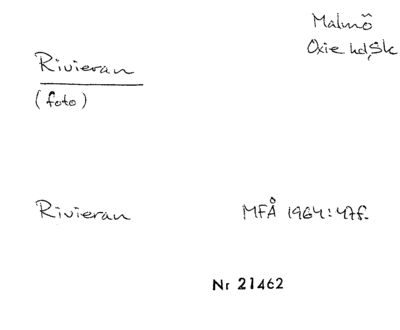 Malmö
Oxie hd, Sk
Rivieran
(foto)
Rivieran MFÅ 1964:47f.
Nr 21462